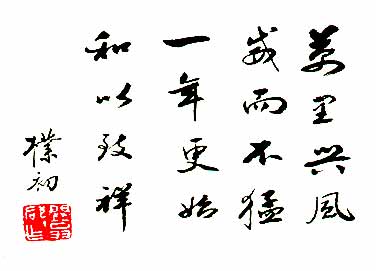 萬里兴風
威而不猛
一年更始
和以致祥
樸初